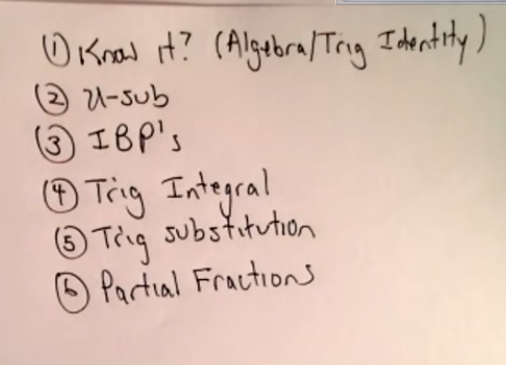 ① Know it? (Algebra/Trig Identity)
② U-sub
③ IBP's
④ Trig Integral
⑤ Trig substitution
⑥ Partial Fractions